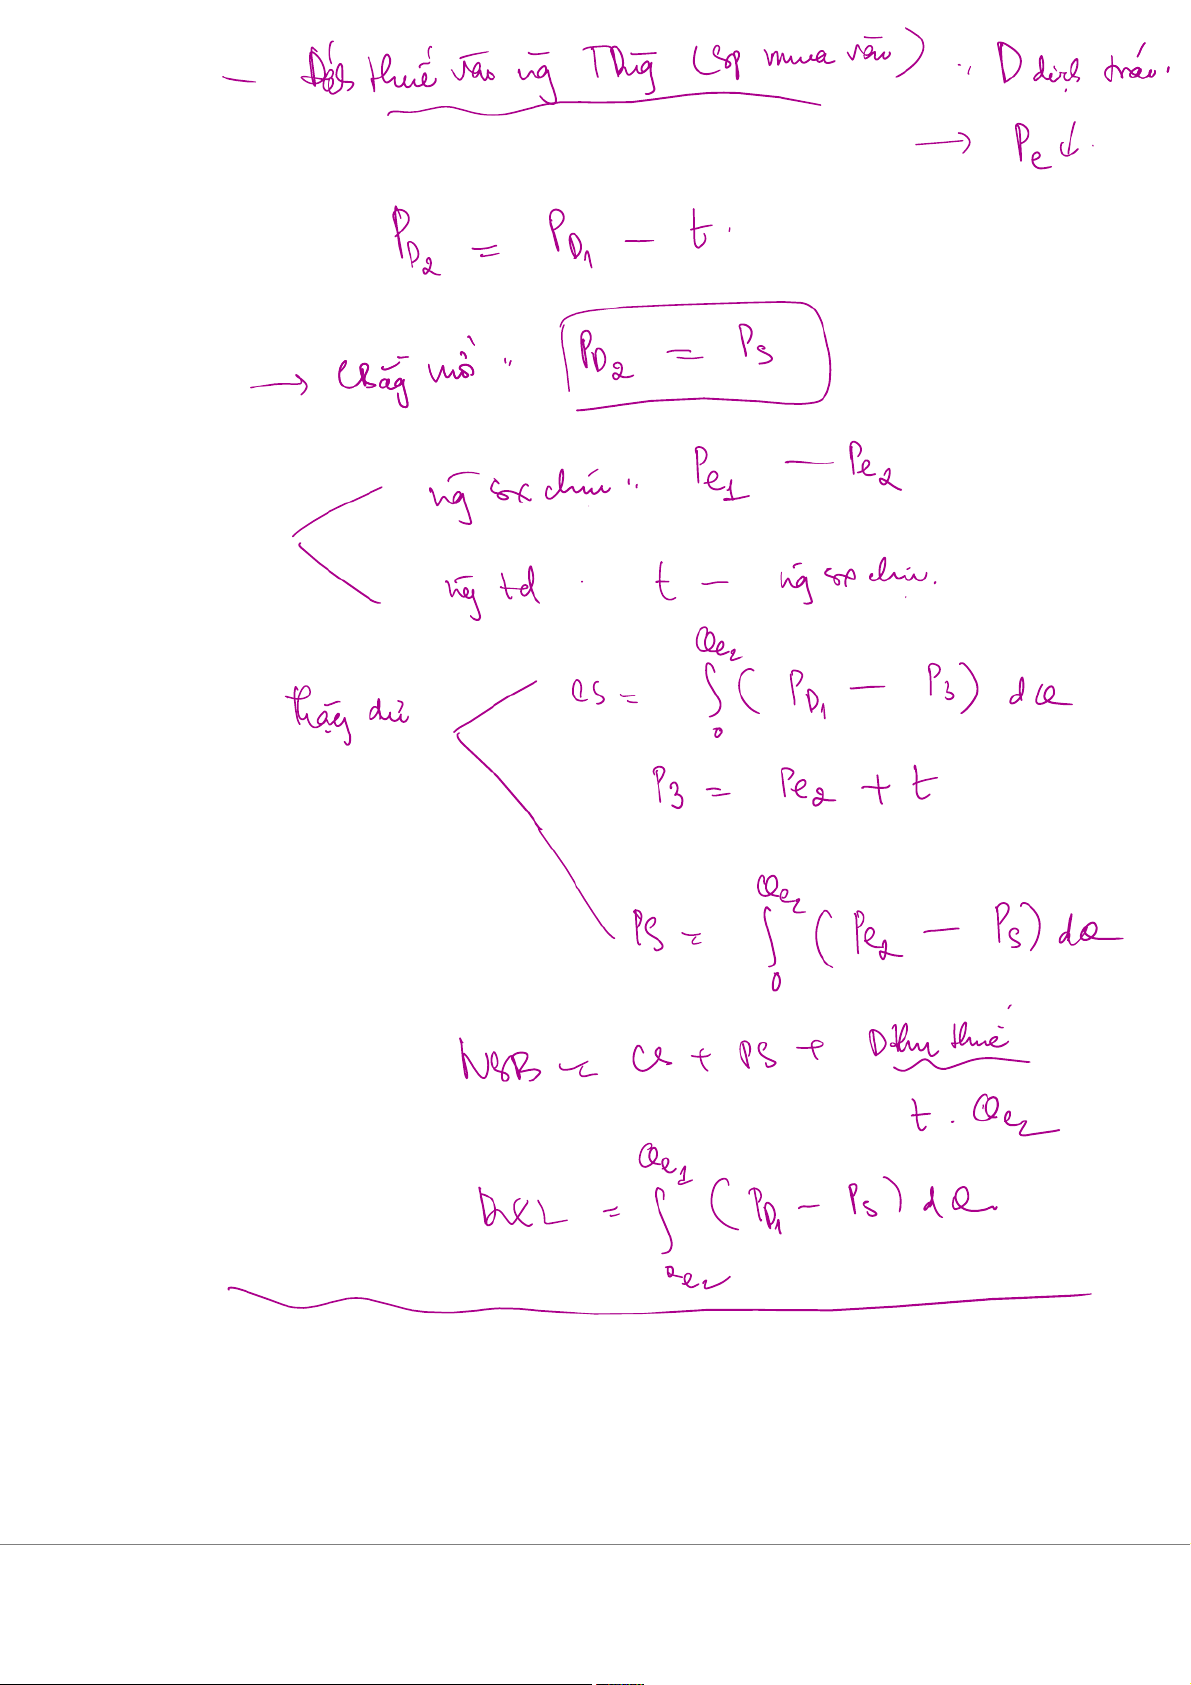 - Đánh thuế vào ng̃ Tdùg (sp mua vào) : D dịch trái.
→ Pe ↓.
P_D2 = P_D1 - t.
→ CBằg mới : P_D2 = Ps
ng̃ sx chịu : Pe1 - Pe2
ng̃ td : t - ng̃ sx chịu.
thặg dư
CS = ∫_0^Qe2 (P_D1 - P3) dQ
P3 = Pe2 + t
PS = ∫_0^Qe2 (Pe2 - Ps) dQ
NSB = CS + PS + Dthu thuế
t . Qe2
DWL = ∫_Qe2^Qe1 (P_D1 - Ps) dQ